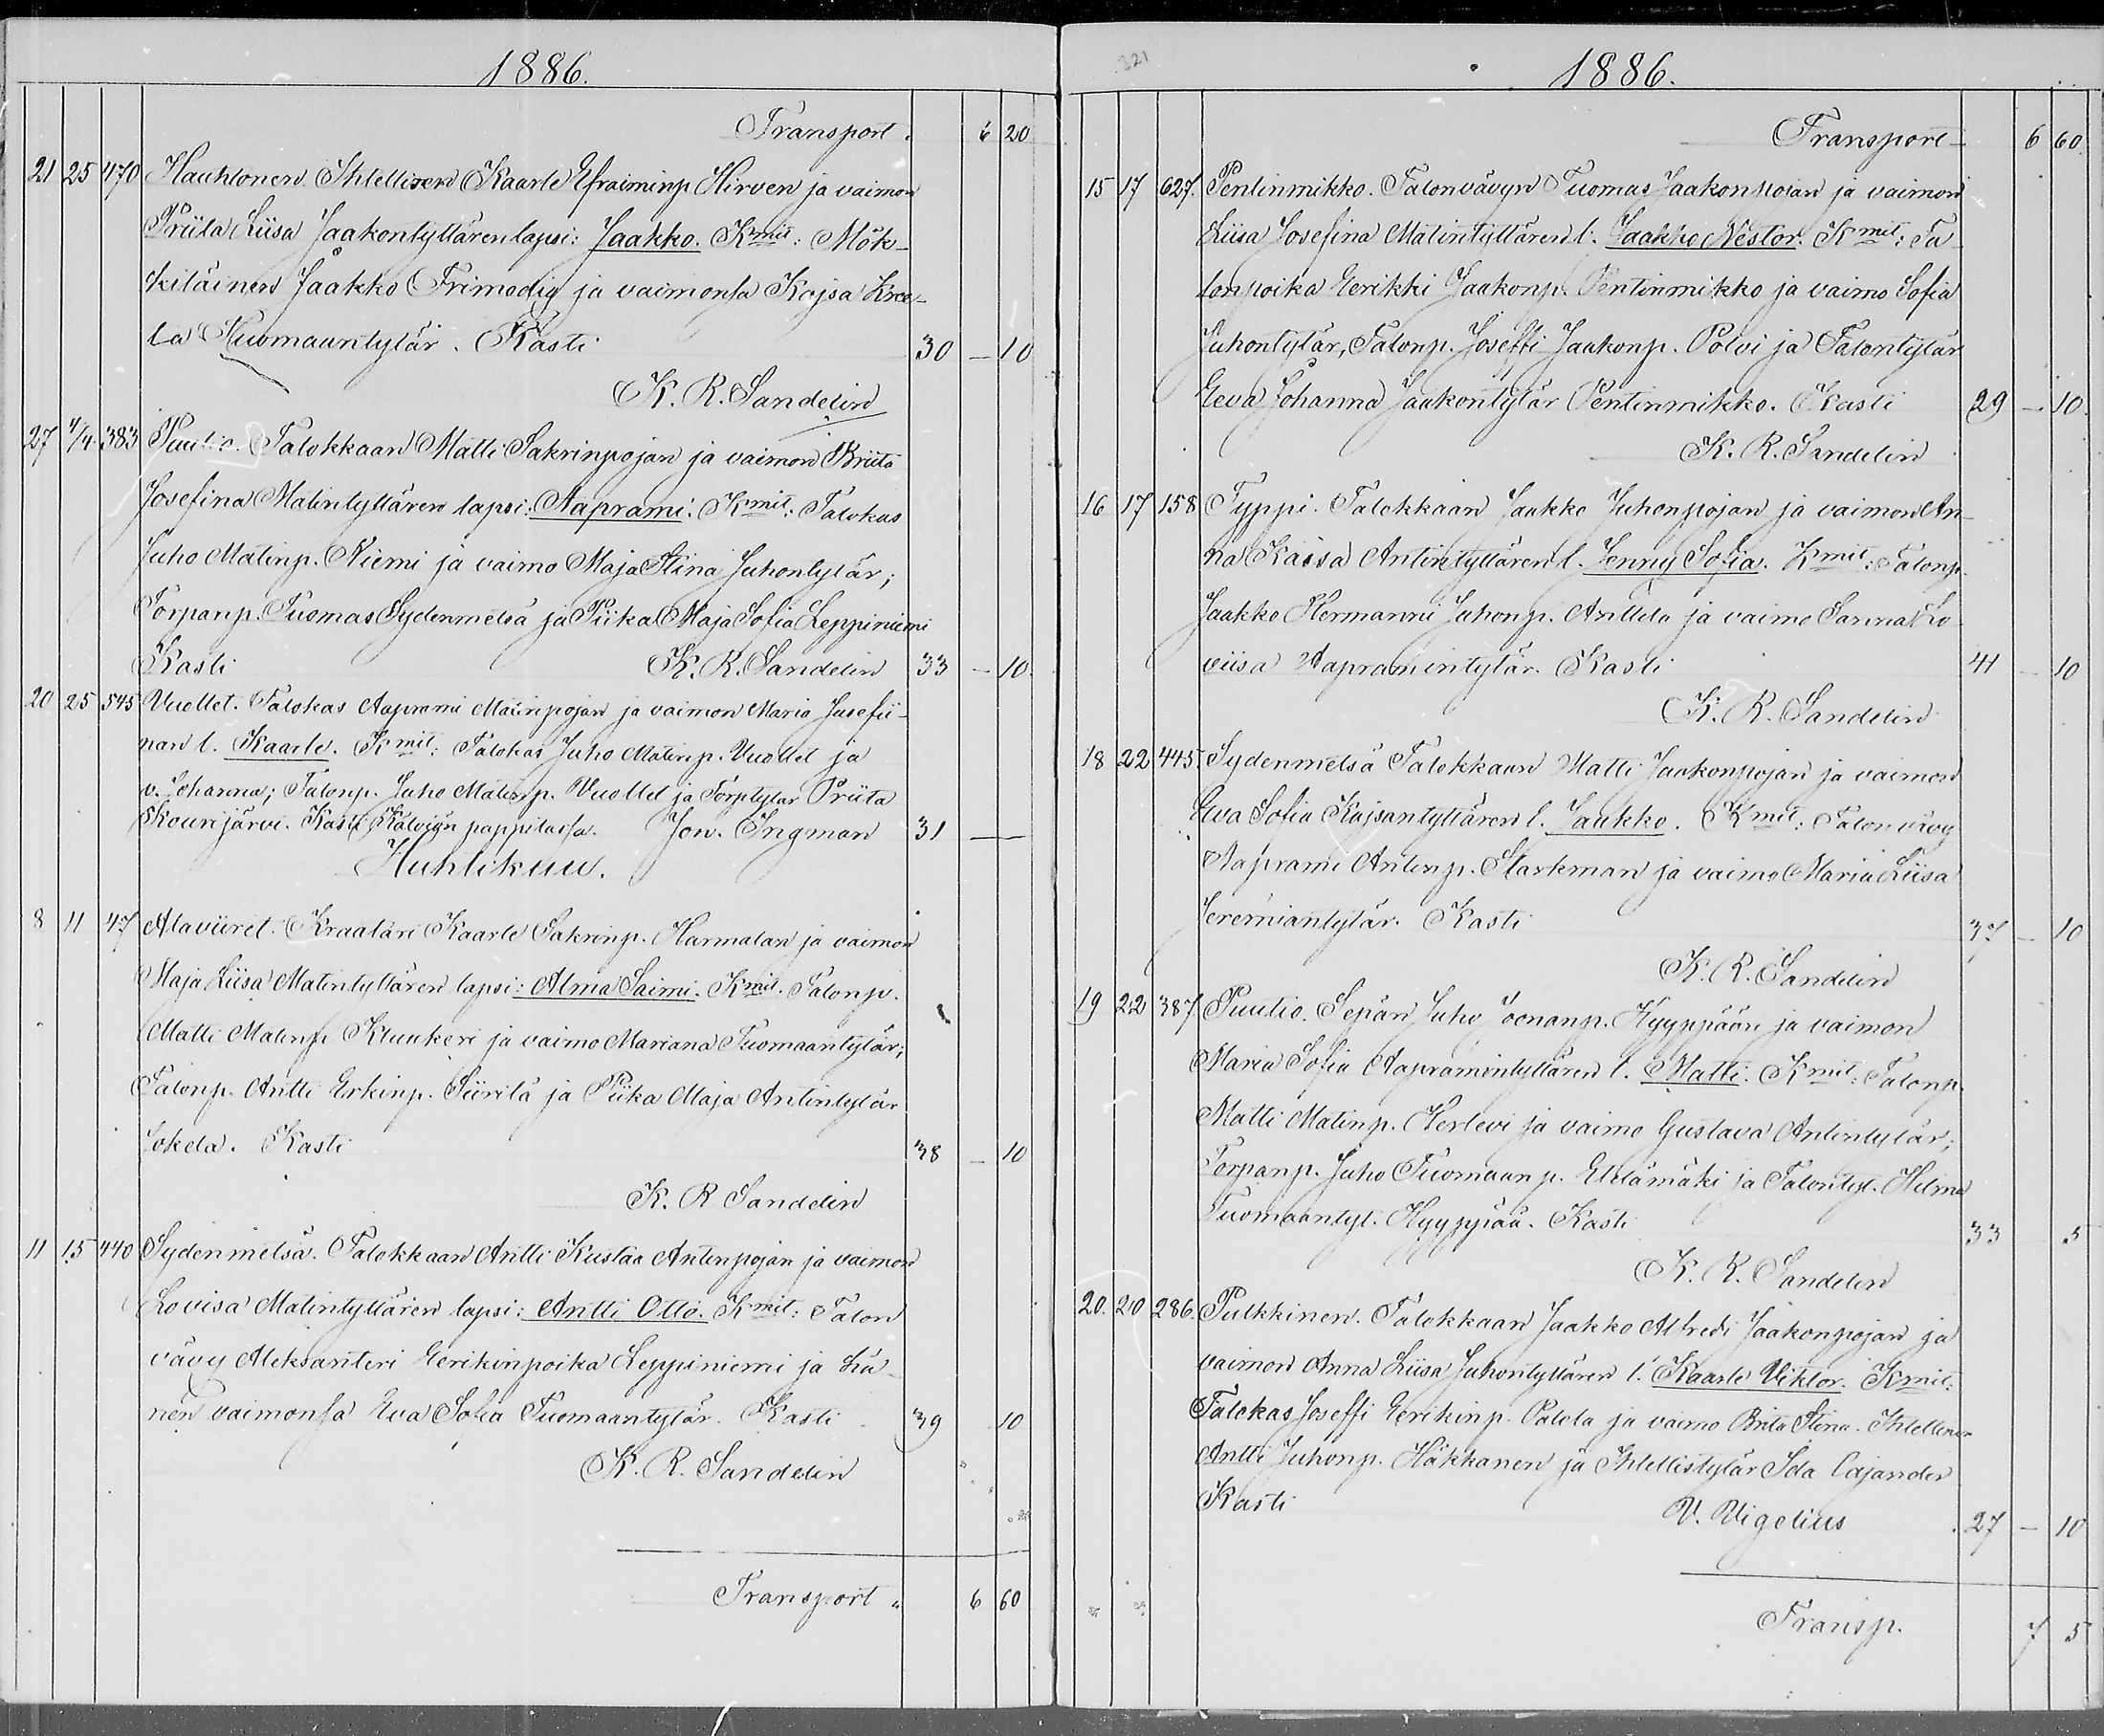 1886.
Transport. 6 20
21 25 470 Hauhtonen Ihtellisen Kaarle Efraiminp. Hirven ja vaimon
Priita Liisa Jaakontyttären lapsi: Jaakko. Kmit: Mök-
kiläinen Jaakko Frimodig ja vaimonsa Kajsa Kree-
ta Tuomauntytär. Kasti 30 — 10
K. R. Sandelin
27 4/4 383 Puutio. Talokkaan Matti Sakrinpojan ja vaimon Briita
Josefina Matintyttären lapsi: Aaprami. Kmit: Talokas
Juho Matinp. Niemi ja vaimo Maja Stina Juhontytär;
Torpanp. Tuomas Sydenmetsä ja Piika Maja Sofia Leppiniemi
Kasti K. R. Sandelin 33 — 10.
20 25 545 Vuollet. Talokas Aaprami Matinpojan ja vaimon Maria Josefii-
nan l. Kaarle. Kmit: Talokas Juho Matinp. Vuollet ja
v. Johanna; Talonp. Juho Matinp. Vuollet ja Torptytär Priita
Kourijärvi. Kasti Kälviän pappilassa. Jon. Ingman 31 —
Huhtikuu.
8 11 47 Alaviiret. Kraatari Kaarle Sakrinp. Harmalan ja vaimon
Maja Liisa Matintyttären lapsi: Alma Saimi. Kmit. Talonp.
Matti Matinp. Kluukeri ja vaimo Mariana Tuomaantytär;
Talonp. Antti Erkinp. Siirilä ja Piika Maja Antintytär
Jokela. Kasti 38 — 10
K. R Sandelin
11 15 440 Sydenmetsä. Talokkaan Antti Kustaa Antinpojan ja vaimon
Lovisa Matintyttären lapsi: Antti Otto. Kmit: Talon
vävy Aleksanteri Eerikinpoika Leppiniemi ja hä-
nen vaimonsa Eva Sofia Tuomaantytär. Kasti 39 10
K. R. Sandelin
Transport 6 60
321
1886.
Transport 6 60.
15 17 627. Pentinmikko. Talonvävyn Tuomas Jaakonpojan ja vaimon
Liisa Josefina Matintyttären l. Jaakko Nestor. Kmit: Ta-
lonpoika Eerikki Jaakonp. Pentinmikko ja vaimo Sofia
Juhontytär, Talonp. Joseffi Jaakonp. Polvi ja Talontytär
Eeva Johanna Jaakontytär Pentinmikko. Kasti 29 — 10.
K. R. Sandelin
16 17 158 Typpi. Talokkaan Jaakko Juhonpojan ja vaimon An-
na Kaisa Antintyttären l. Jenny Sofia. Kmit: Talonp.
Jaakko Hermanni Juhonp. Anttila ja vaimo Sanna Lo-
viisa Aapramintytär. Kasti 41 — 10
K. R. Sandelin
18 22 445. Sydenmetsä Talokkaan Matti Jaakonpojan ja vaimon
Eva Sofia Kajsantyttären l. Jaakko. Kmit: Talon vävy
Aaprami Antinp. Starkman ja vaimo Maria Liisa
Jeremiantytär. Kasti 37 — 10
K. R. Sandelin
19 22 387 Puutio. Sepän Juho Joonanp. Hyyppään ja vaimon
Maria Sofia Aapramintyttären l. Matti. Kmit: Talonp.
Matti Matinp. Herlevi ja vaimo Gustava Antintytär;
Torpanp. Juho Tuomaanp. Etelämäki ja Talontyt. Hilma
Tuomaantyt. Hyyppää. Kasti 33 5
K. R. Sandelin
20. 20 286. Pulkkinen. Talokkaan Jaakko Alfredi Jaakonpojan ja
vaimon Anna Liisa Juhontyttären l. Kaarle Viktor. Kmit:
Talokas Joseffi Eerikinp. Palola ja vaimo Brita Stina. Ihtellinen
Antti Juhonp. Häkkanen ja Ihtellistytär Ida Cajander
Kasti V. Vigelius 27 — 10
Transp. 7 5